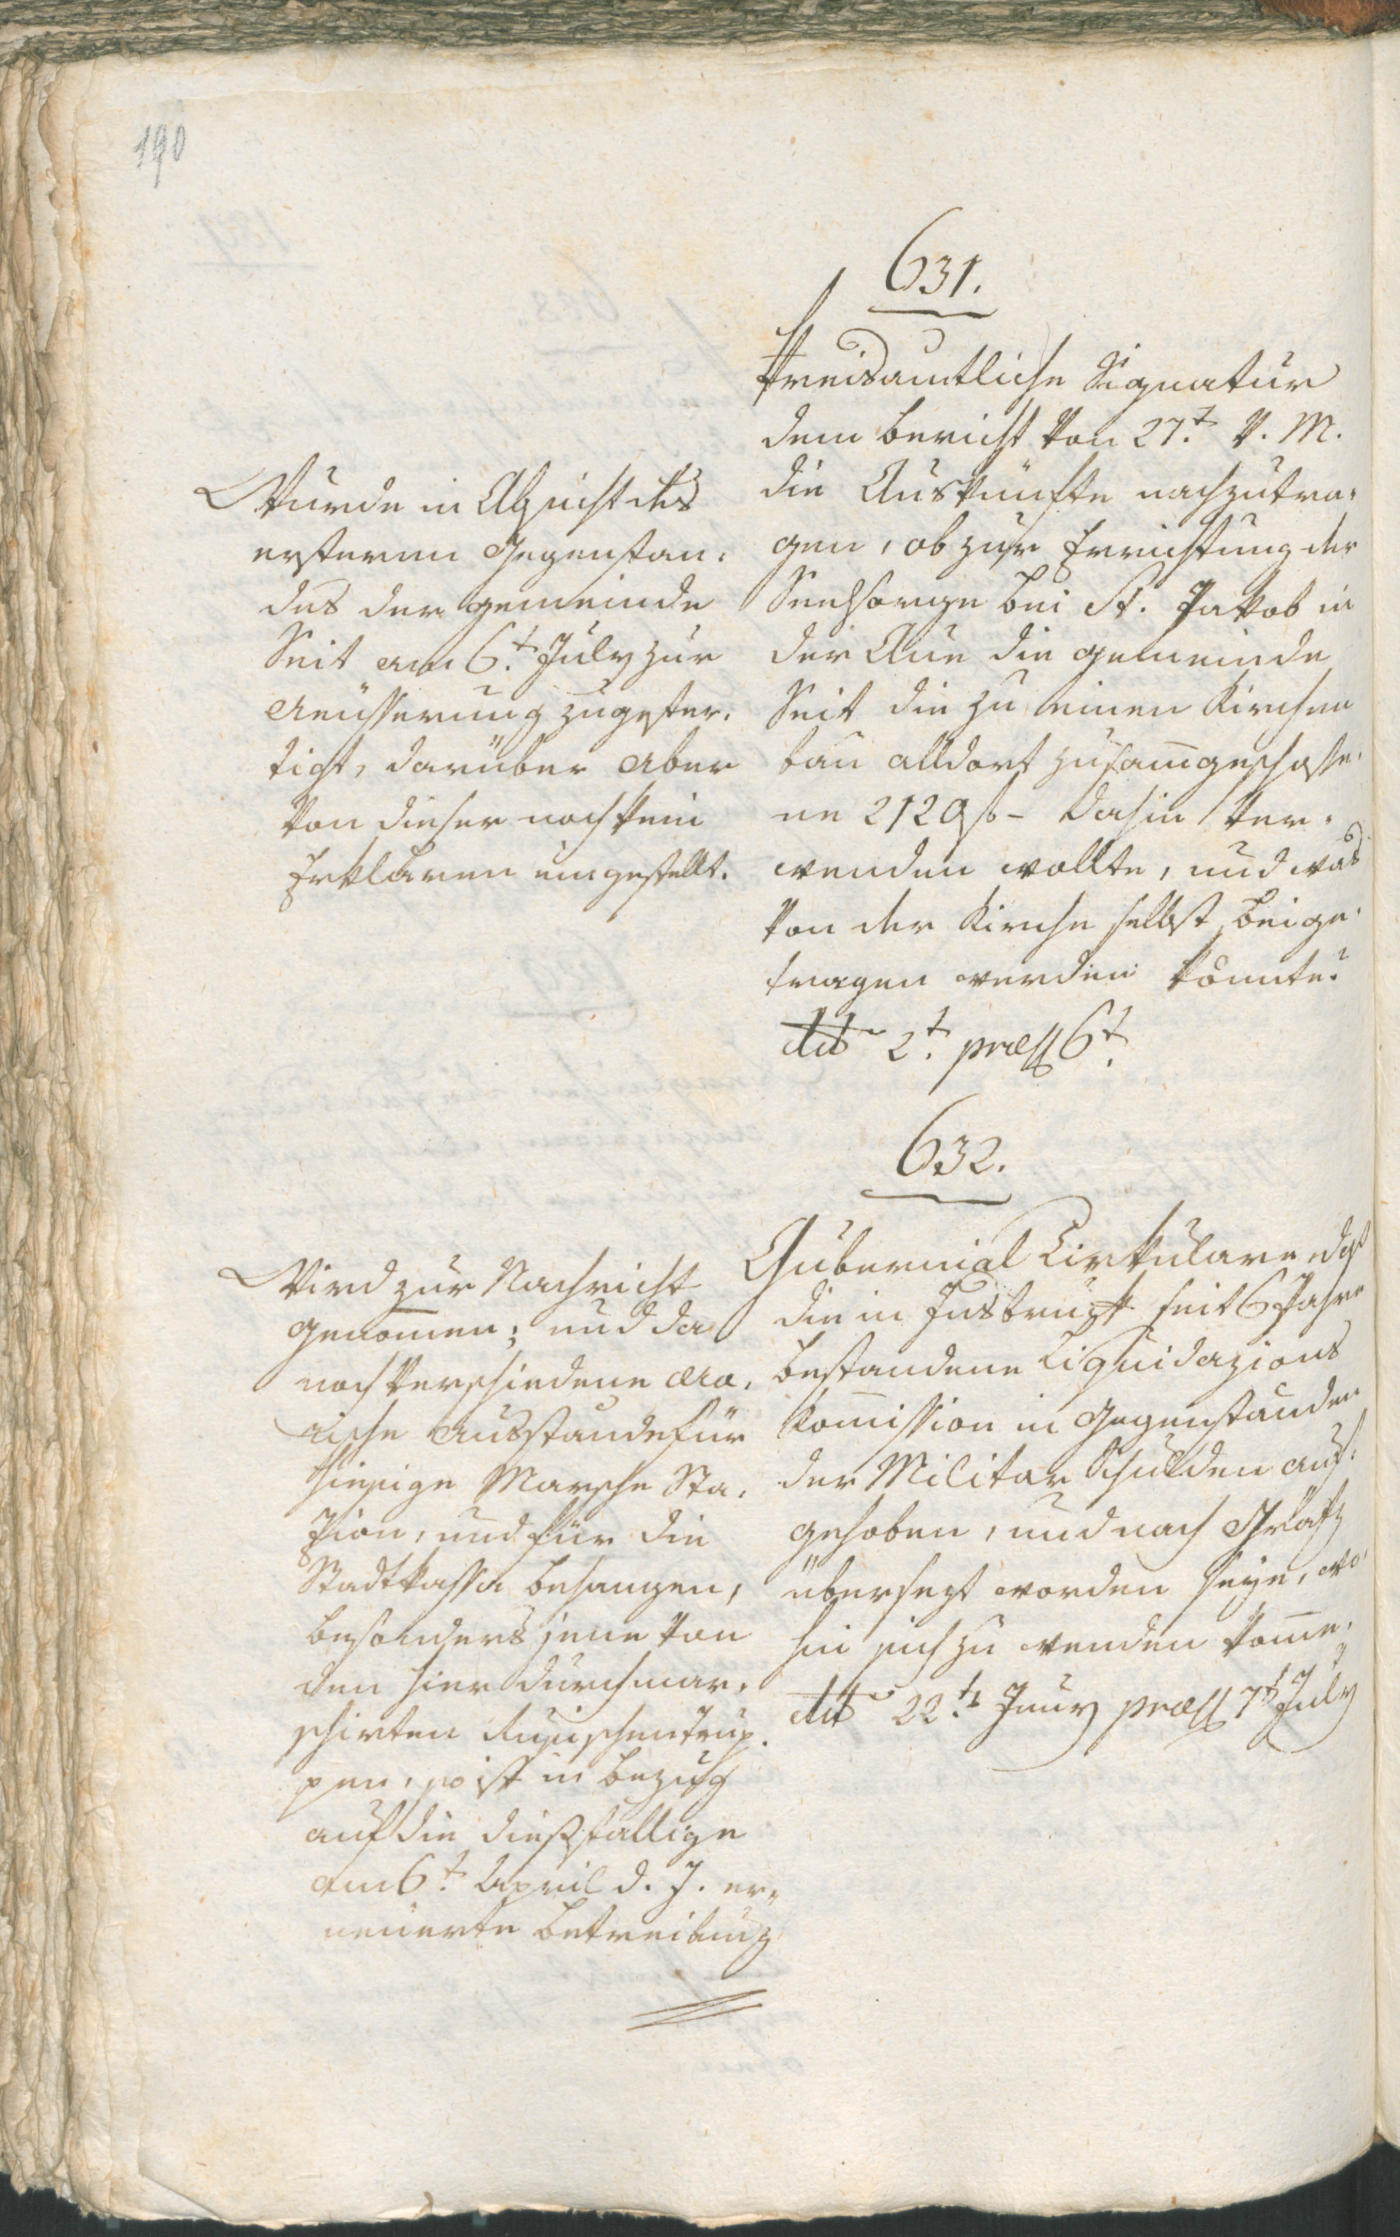 190
631.
Kreisamtliche Signatur
dem Bericht von 27.t v. M.
die Auskünfte nachzutra„
gen, ob zur Errichtung der
Seelsorge bei St. Jakob in
der Aue die Gemeinde
Seit die zu einen Kirchen
bau alldort zusamgeschosse„
ne 2120 f – dahin ver„
wenden wollte, und was
von der Kirche selbst beige„
tragen werden könnte?
dto 2.t præss 6.t
Wurde in Absicht des
ersteren Gegenstan„
des der Gemeinde
Seit am 6.t July zur
Aeüsserung zugefer„
tigt, darüber aber
von dieser noch kein
Erklären eingestellt.
632.
Gubernial Cirkulare, daß
die in Insbruck seit 6 Jahre
bestandene Liquidazions
Komission in Gegenständen
der Militar Schulden auf„
gehoben, und nach Grätz
übersezt worden seye, wo„
hin sich zu wenden kome.
dto 22.t Juny præss 7.t July
Wird zur Nachricht
genomen; und da
noch verschiedene æra„
rische Ausstände für
hiesige Marsche Sta„
zion, und für die
Stadtkassa behangen,
besonders jene von
den hier durchmar„
schirten Rusischen Trup„
pen, so ist in Bezug
auf die dießfällige
am 6.t April d. J. er„
neuerte Betreibung